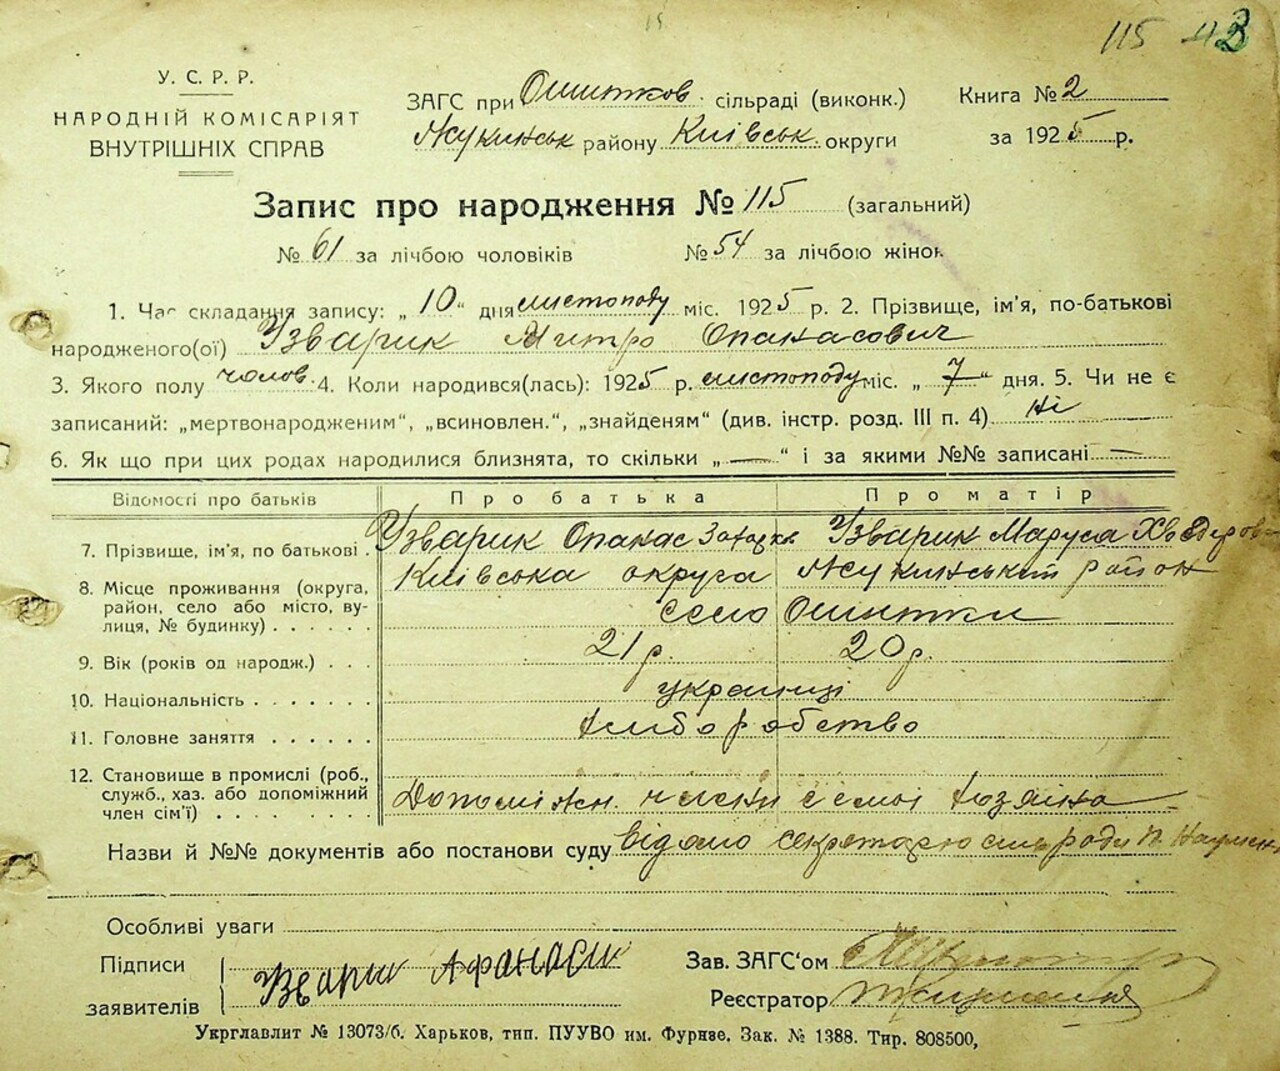 115 43
У. С. Р. Р.
НАРОДНІЙ КОМІСАРІЯТ
ВНУТРІШНІХ СПРАВ
ЗАГС при Ошитков. сільраді (виконк.)
Жукинськ району Київськ. округи
Книга № 2
за 1925 р.
Запис про народження № 115 (загальний)
№ 61 за лічбою чоловіків № 54 за лічбою жінок
1. Час складання запису: „ 10 “ дня листопаду міс. 1925 р. 2. Прізвище, ім'я, по-батькові
народженого(ої) Узварик Митро Опанасович
3. Якого полу чолов. 4. Коли народився(лась): 1925 р. листопаду міс. „ 7 “ дня. 5. Чи не є
записаний: „мертвонародженим“, „всиновлен.“, „знайденям“ (див. інстр. розд. III п. 4) Ні
6. Як що при цих родах народилися близнята, то скільки „ — “ і за якими №№ записані —
Відомості про батьків Про батька Про матір
7. Прізвище, ім'я, по батькові . Узварик Опанас Узварик Маруса
8. Місце проживання (округа, район, село або місто, вулиця, № будинку) . . . . . . Київська округа Жукинський район
село Ошитки
9. Вік (років од народж.) . . . 21 р. 20 р.
10. Національність . . . . . . . українці
11. Головне заняття . . . . . . хліборобство
12. Становище в промислі (роб.,
служб., хаз. або допоміжний
член сім'ї) . . . . . . . . . Допоміжн. члени семьї хозяїна
Назви й №№ документів або постанови суду Відомо секретарю сільради
Особливі уваги
Підписи
заявителів Узварик Афанаси
Зав. ЗАГС‘ом
Реєстратор
Укрглавліт № 13073/б. Харьков, тип. ПУУВО им. Фрунзе. Зак. № 1388. Тир. 808500,